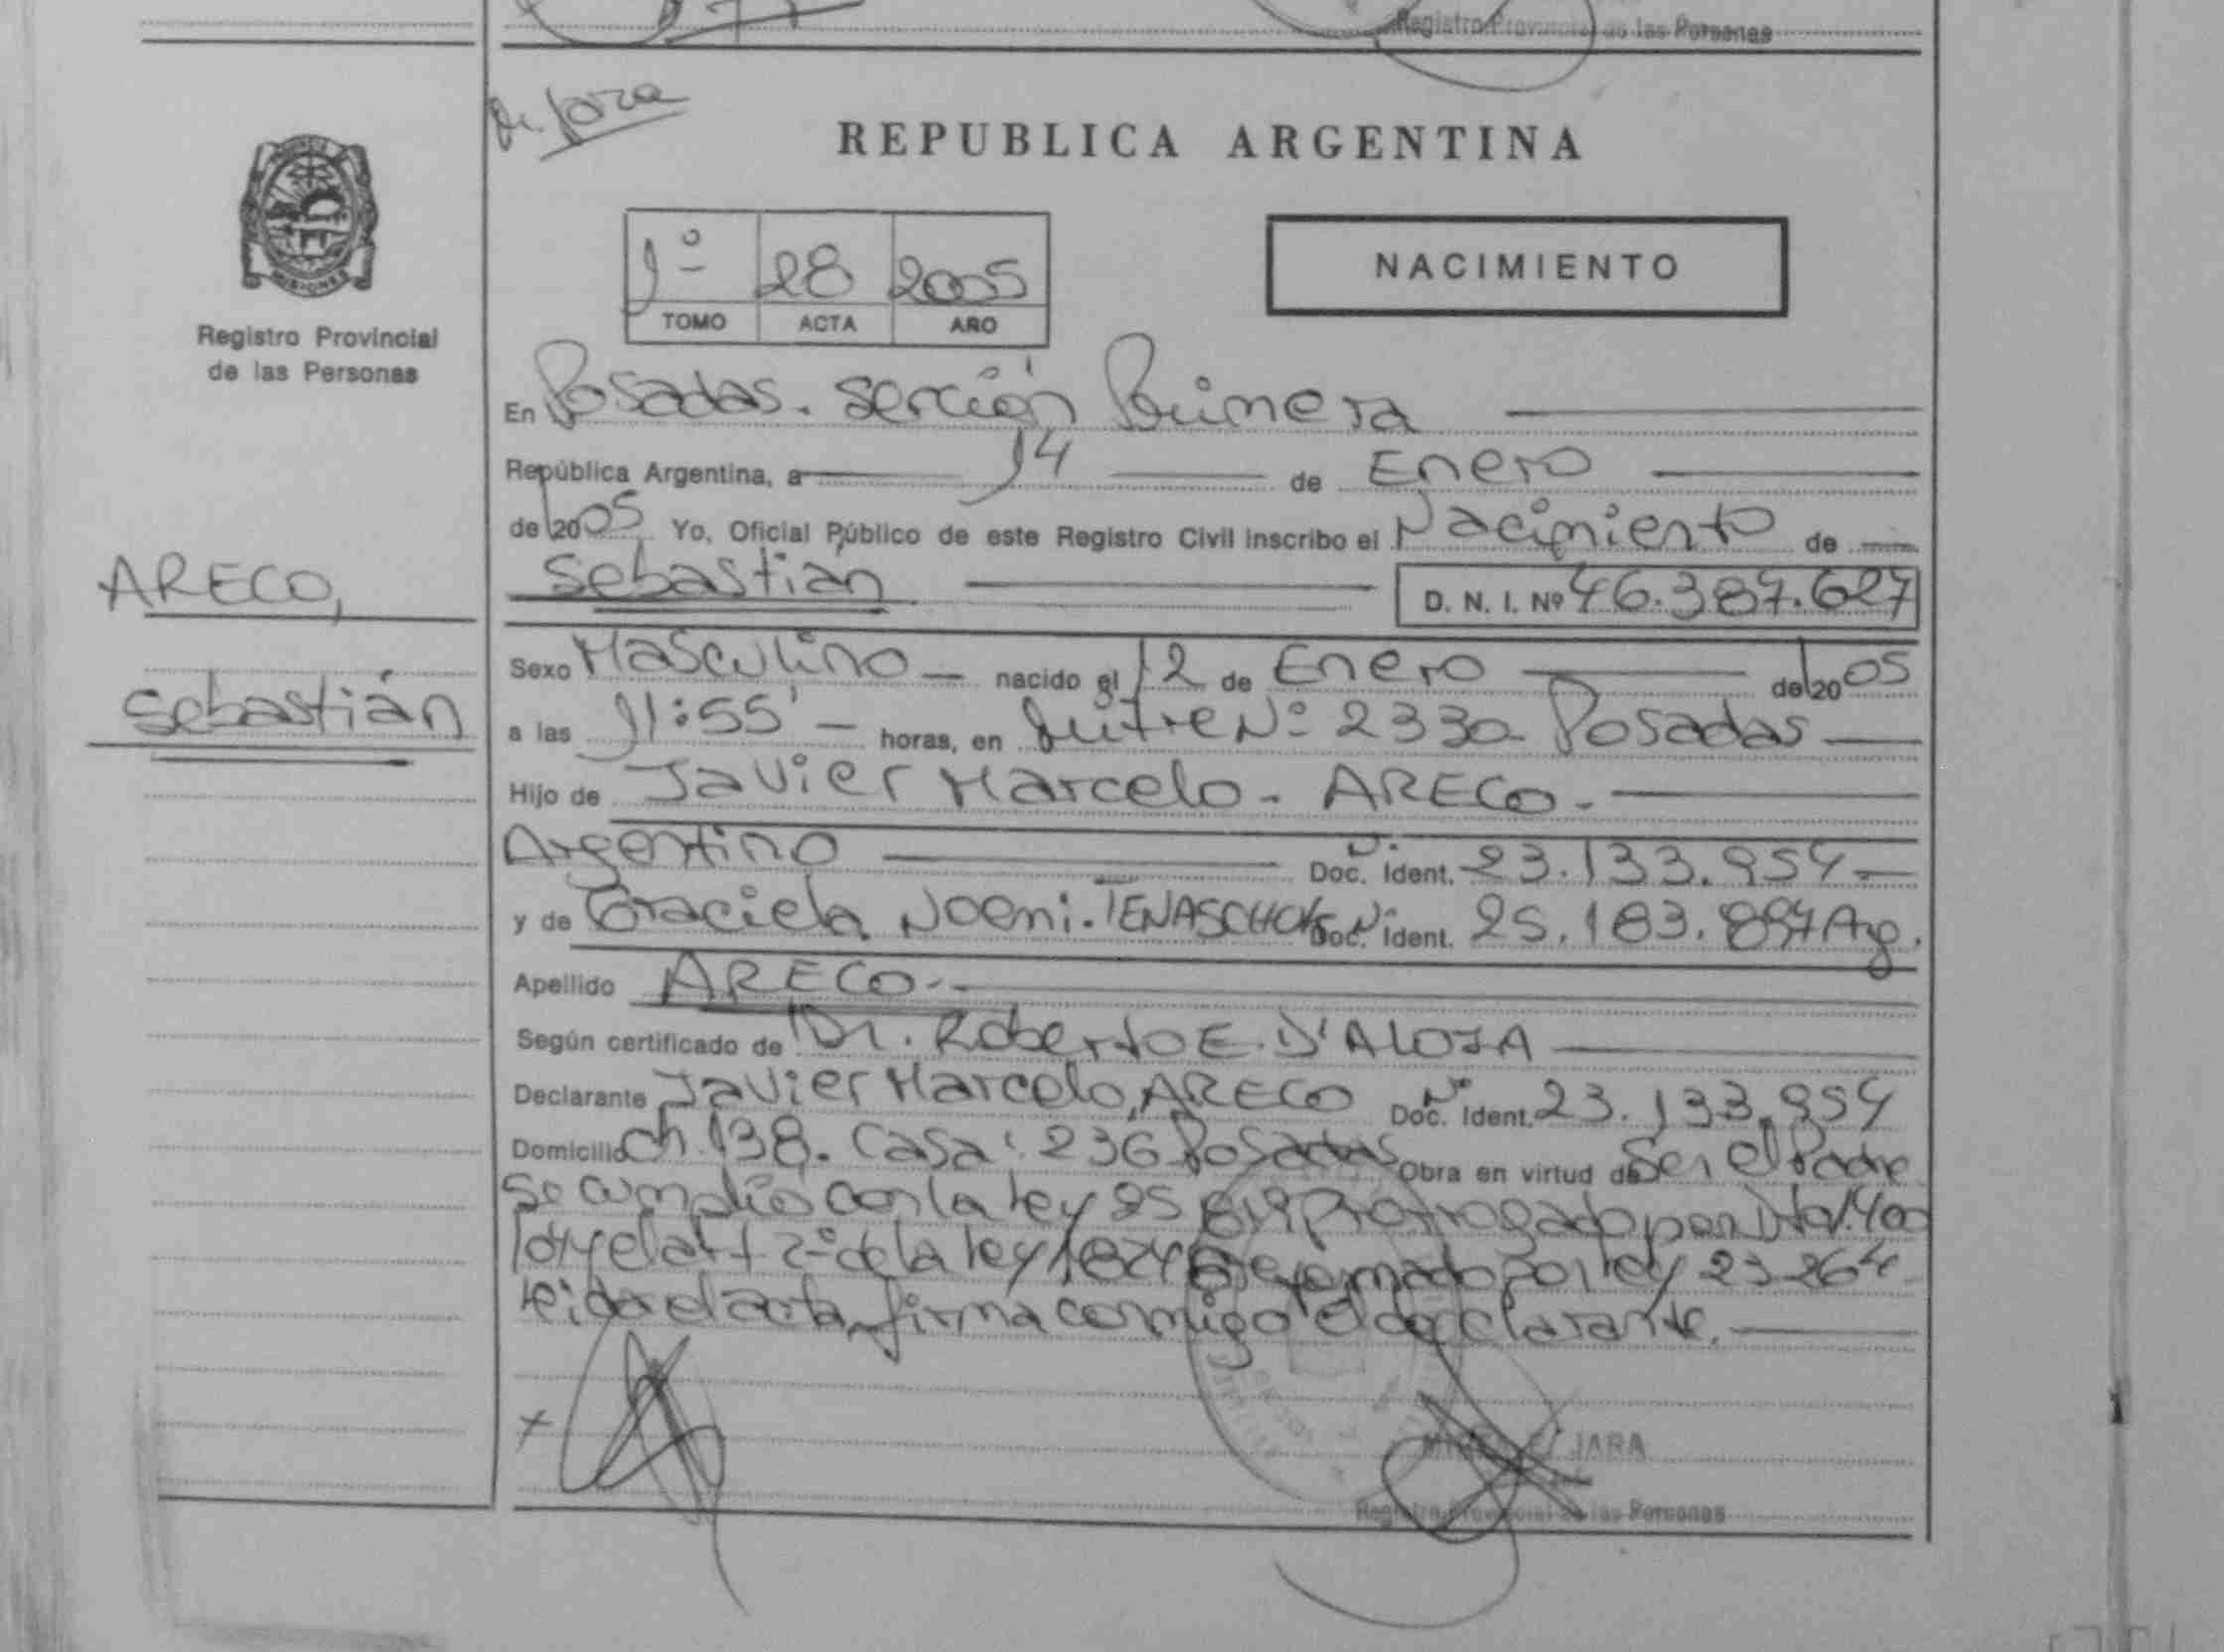 Registro Provincial de las Personas
REPUBLICA ARGENTINA
MISIONES
Registro Provincial
de las Personas
1º 28 2005
TOMO ACTA AÑO
NACIMIENTO
En Posadas. Sección Primera
República Argentina, a 14 de Enero
de 2005 Yo, Oficial Público de este Registro Civil inscribo el Nacimiento de
Sebastián D. N. I. Nº 46.387.627
ARECO,
Sebastián
Sexo Masculino nacido el 12 de Enero de 2005
a las 11:55' horas, en Mitre Nº 2330 Posadas
Hijo de Javier Marcelo - ARECO -
Argentino Doc. Ident. 23.133.954
y de Graciela Noemi. Doc. Ident. 25.183.897 Arg.
Apellido ARECO
Según certificado de Dr. Roberto E. D'ALOIA
Declarante Javier Marcelo, ARECO Doc. Ident. 23.133.954
Domicilio Ch. 138. Casa: 236 Posadas Obra en virtud de Ser el Padre
Se cumplió con la ley 25 819 Prorrogado por
y el art 2º de la ley 18248 reformado por ley 23264
leida el acta, firma conmigo el declarante.
JARA
Registro Provincial de las Personas